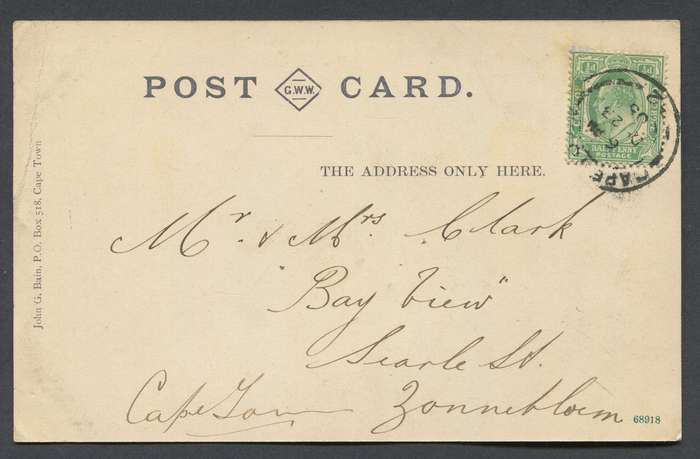 POST G.W.W. CARD.
THE ADDRESS ONLY HERE.
Mr. & Mrs Clark
"Bay View"
Searle St.
Cape Town Zonnebloem
68918
John G. Bain, P.O. Box 518, Cape Town
½d ½d
HALFPENNY
POSTAGE
CAPE